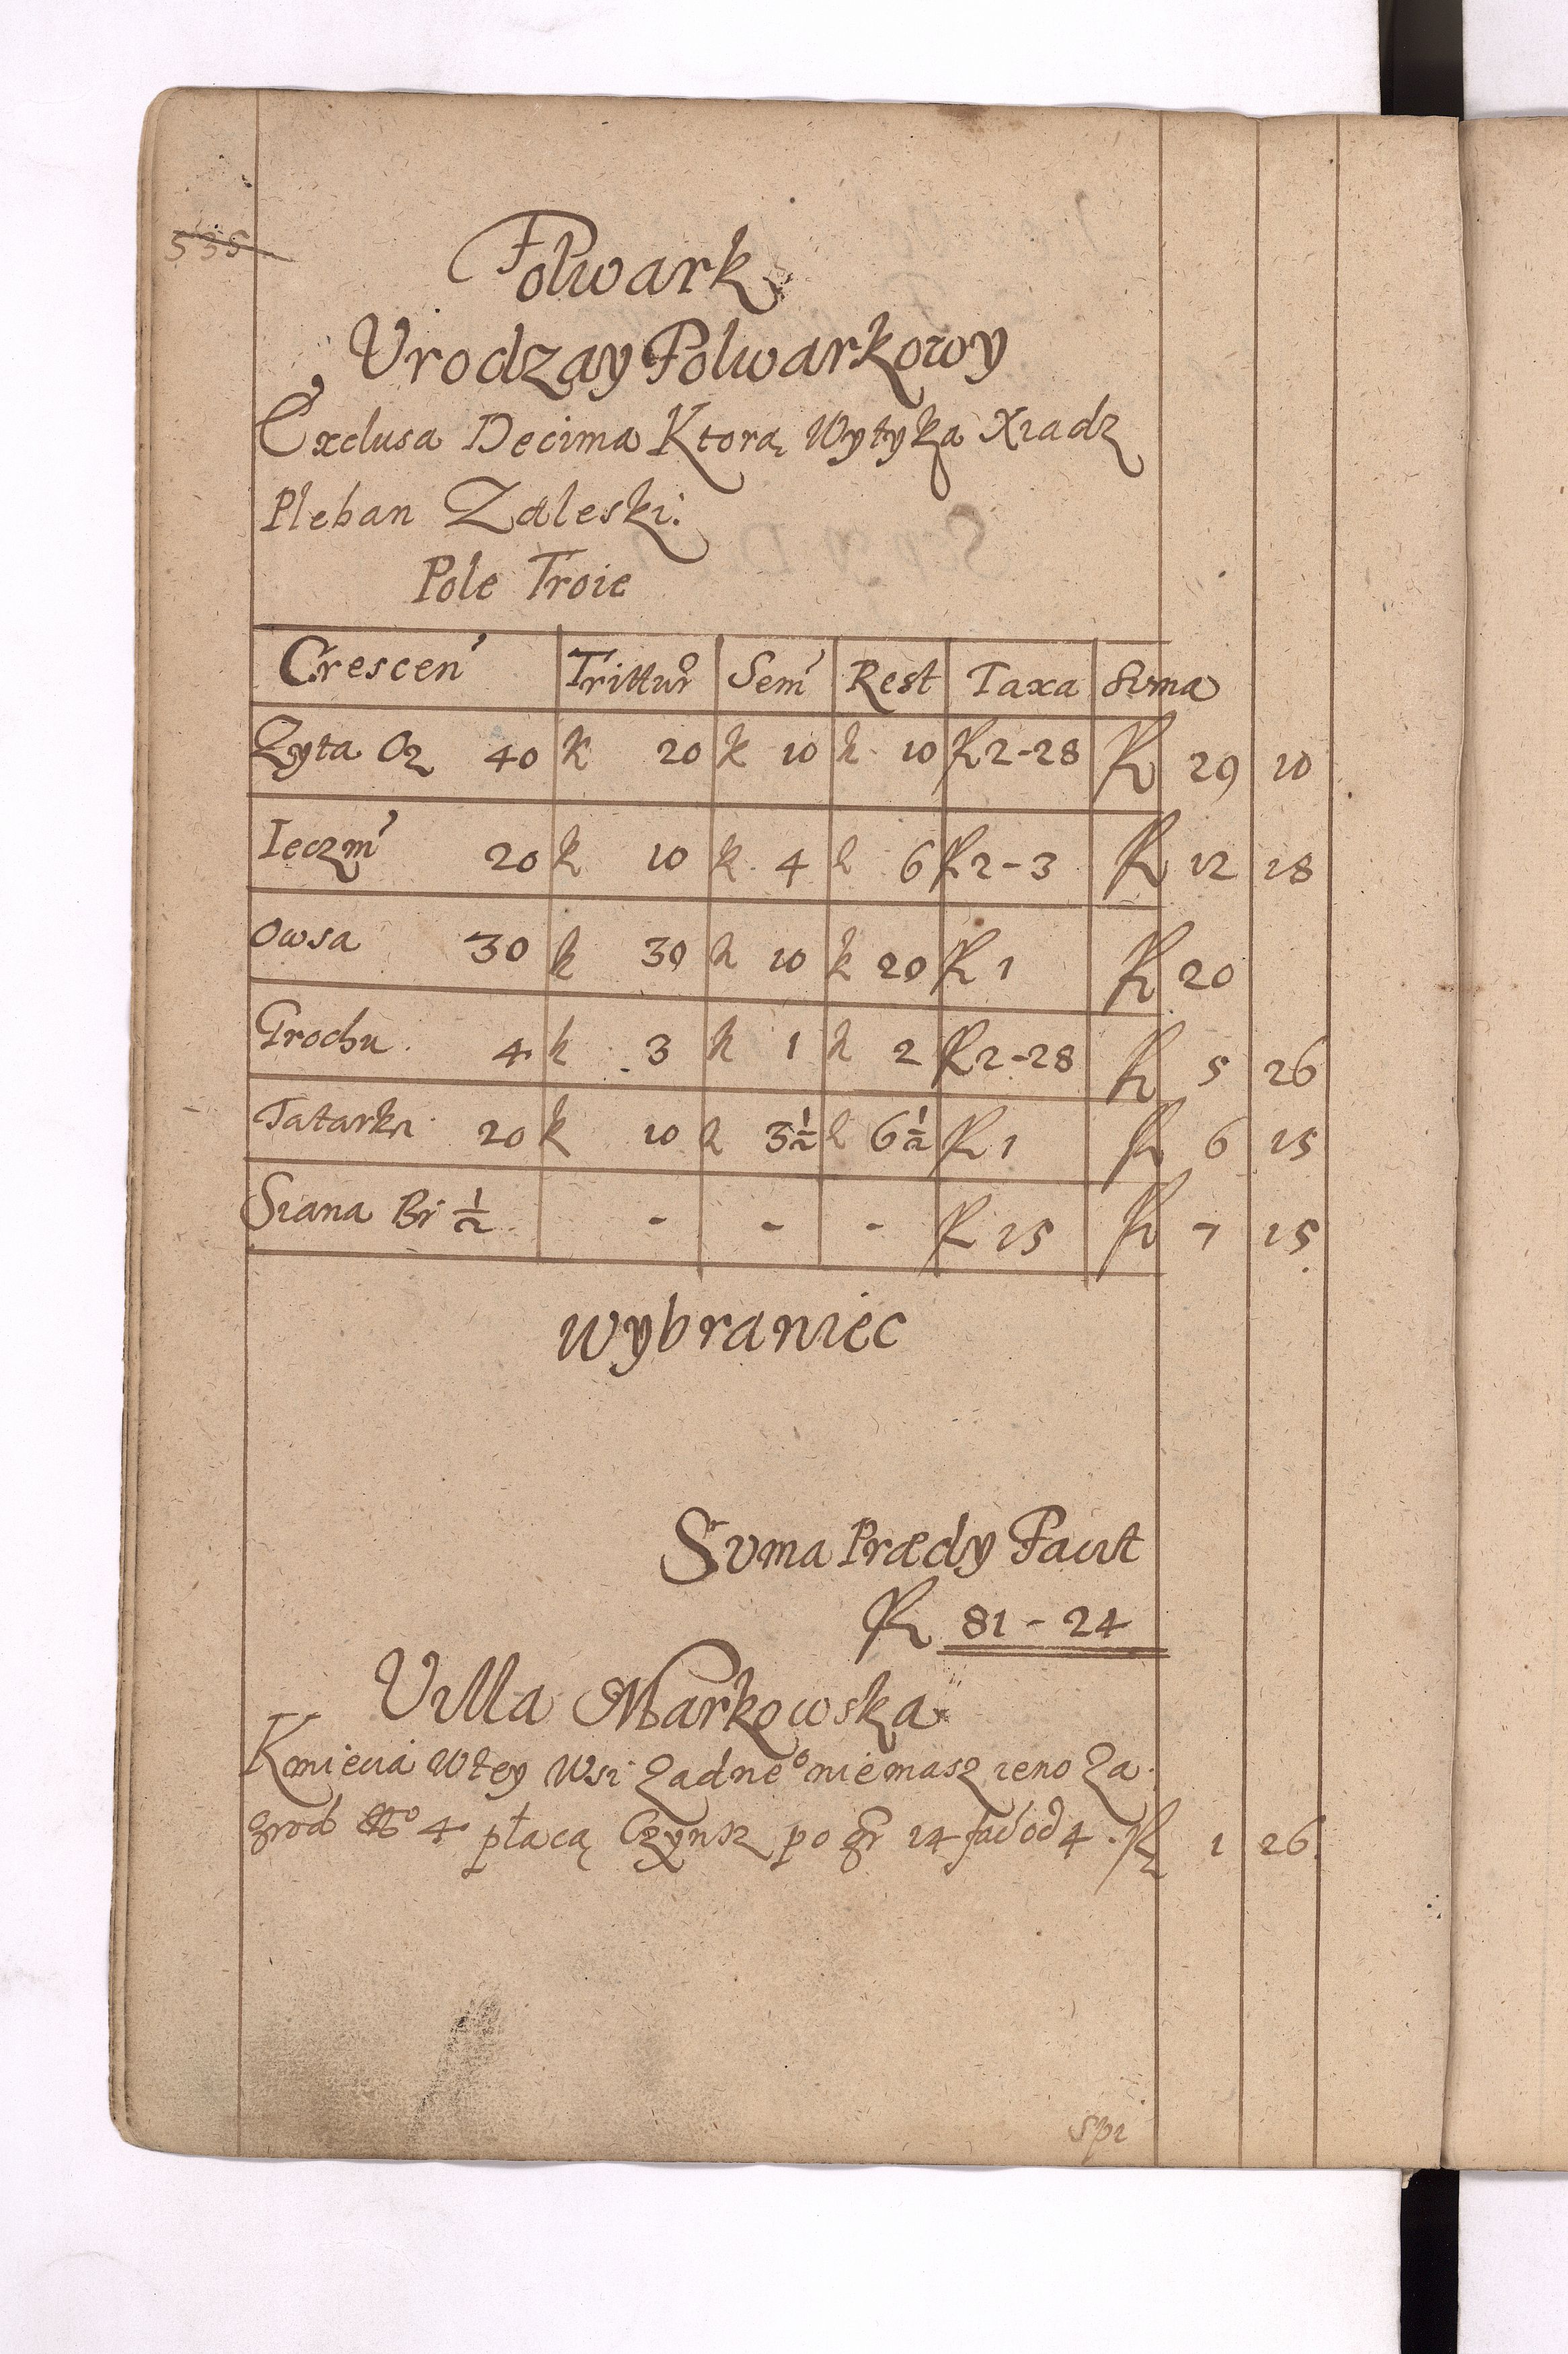 535
Folwark
Vrodzay Folwarkowy
Exclusa Decima Ktorą Wytyka Xiadz
Pleban Zaleski.
Pole Troie
Crescen Trittur Sem Rest Taxa Suma
Zyta Oz 40 k 20 k 10 k 10 R 2-28 R 29 10
Ieczm 20 k 10 k 4 k 6 R 2-3 R 12 18
Owsa 30 k 30 k 10 k 20 R 1 R 20
Grochu 4 k 3 k 1 k 2 R 2-28 R 5 26
Tatarki 20 k 10 k 3½ k 6½ R 1 R 6 15
Siana Br ½ - - - R 15 R 7 15
Wybraniec
Suma Prædy Facit
R 81-24
Villa Markowska
Kmiecia w tey Wsi Zadne° niemasz ieno Za
grod 4 płacą Czynsz po gr 14 od 4. R 1 26
spi